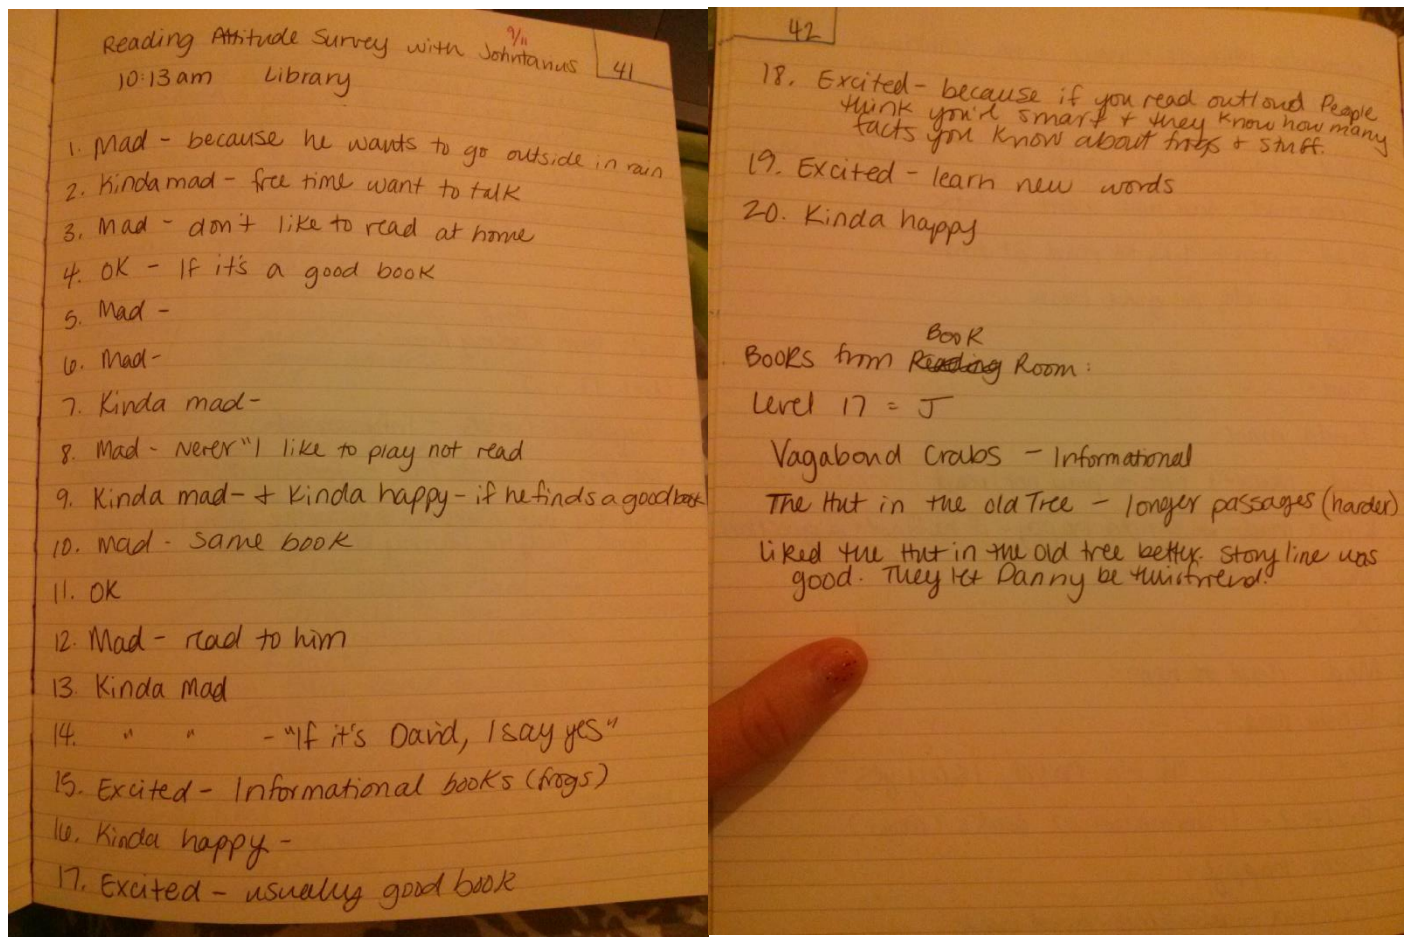 9/11
Reading Attitude Survey with Johntanus
41
10:13am Library
1. Mad - because he wants to go outside in rain
2. Kinda mad - free time want to talk
3. Mad - don't like to read at home
4. OK - If it's a good book
5. Mad -
6. Mad -
7. Kinda mad -
8. Mad - Never "I like to play not read
9. Kinda mad - + Kinda happy - if he finds a good book
10. Mad - same book
11. OK
12. Mad - read to him
13. Kinda mad
14. " " - "If it's David, I say yes"
15. Excited - Informational books (frogs)
16. Kinda happy -
17. Excited - usually good book
42
18. Excited - because if you read outloud People
think you're smart + they know how many
facts you know about frogs + stuff.
19. Excited - learn new words
20. Kinda happy
Book
Books from Reading Room:
Level 17 = J
Vagabond Crabs - Informational
The Hut in the old Tree - longer passages (harder)
Liked the Hut in the old tree better. Story line was
good. They let Danny be their friend.